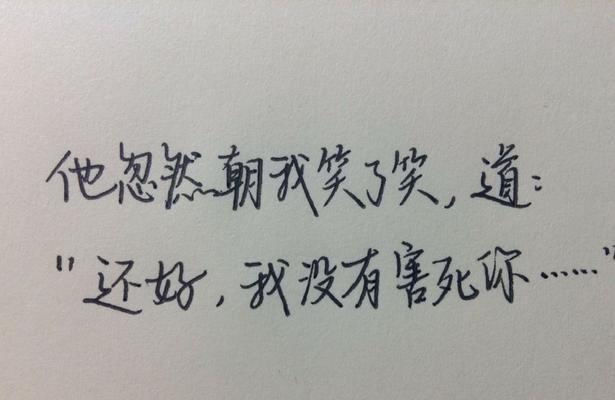 他忽然朝我笑了笑,道:
"还好,我没有害死你……"